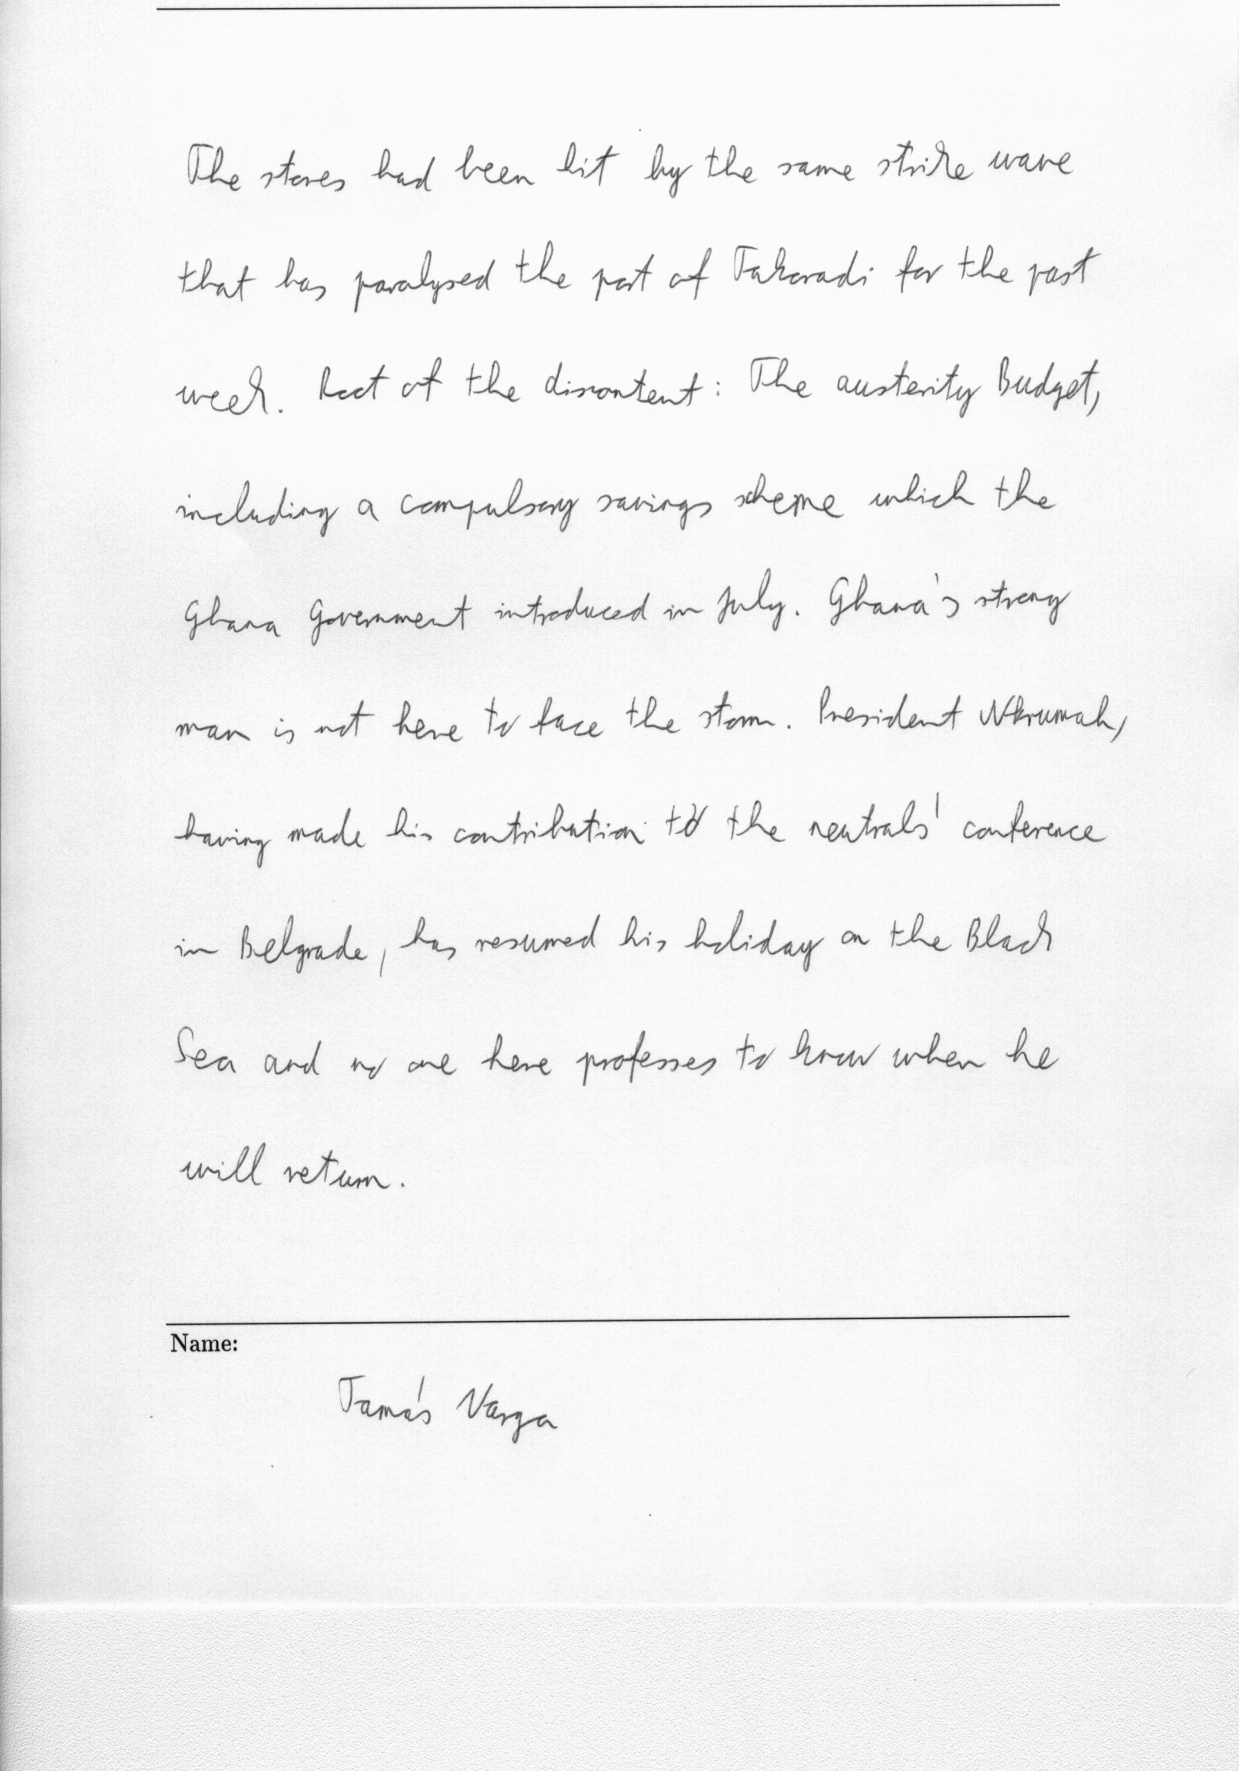 The stores had been hit by the same strike wave
that has paralysed the port of Takoradi for the past
week. Root of the discontent: The austerity Budget,
including a compulsory savings scheme which the
Ghana Government introduced in July. Ghana's strong
man is not here to face the storm. President Nkrumah,
having made his contribution to the neutrals' conference
in Belgrade, has resumed his holiday on the Black
Sea and no one here professes to know when he
will return.
Name:
Tamás Varga